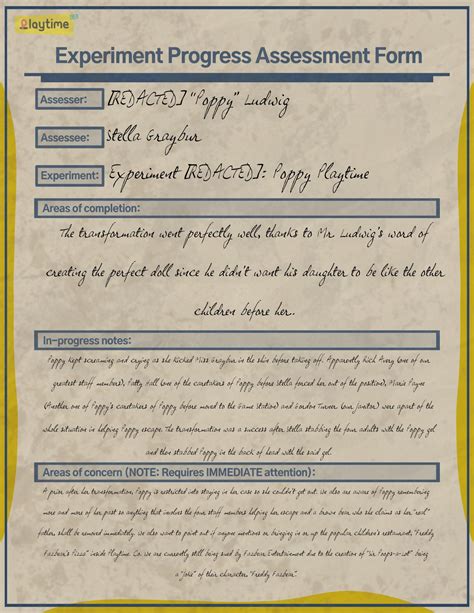 Playtime
Experiment Progress Assessment Form
Assesser: [REDACTED] "Poppy" Ludwig
Assessee: Stella Graybur
Experiment: Experiment [REDACTED]: Poppy Playtime
Areas of completion:
The transformation went perfectly well, thanks to Mr Ludwig's word of
creating the perfect doll since he didn't want his daughter to be like the other
children before her.
In-progress notes:
Poppy kept screaming and crying as she kicked Miss Graybur in the shin before taking off. Apparently Rich Avery (one of our
greatest staff members), Patty Hall (one of the caretakers of Poppy before Stella forced her out of the position), Marie Payne
(Another one of Poppy's caretakers of Poppy before moved to the Game station) and Gordon Turner (our janitor) were apart of the
whole situation in helping Poppy escape. The transformation was a success after Stella stabbing the four adults with the Poppy gel
and then stabbed Poppy in the back of head with the said gel.
Areas of concern (NOTE: Requires IMMEDIATE attention):
A prior after her transformation, Poppy is restricted into staying in her case so she couldn't get out. We also are aware of Poppy remembering
more and more of her past so anything that involves the four staff members helping her escape and a brown bear who she claims as her "real"
father shall be removed immediately. We also want to point out if anyone mentions on bringing in or up the popular children's restaurant, "Freddy
Fazbear's Pizza" inside Playtime Co. We are currently still being sued by Fazbear Entertainment due to the creation of being
a "joke" of their character "Freddy Fazbear".